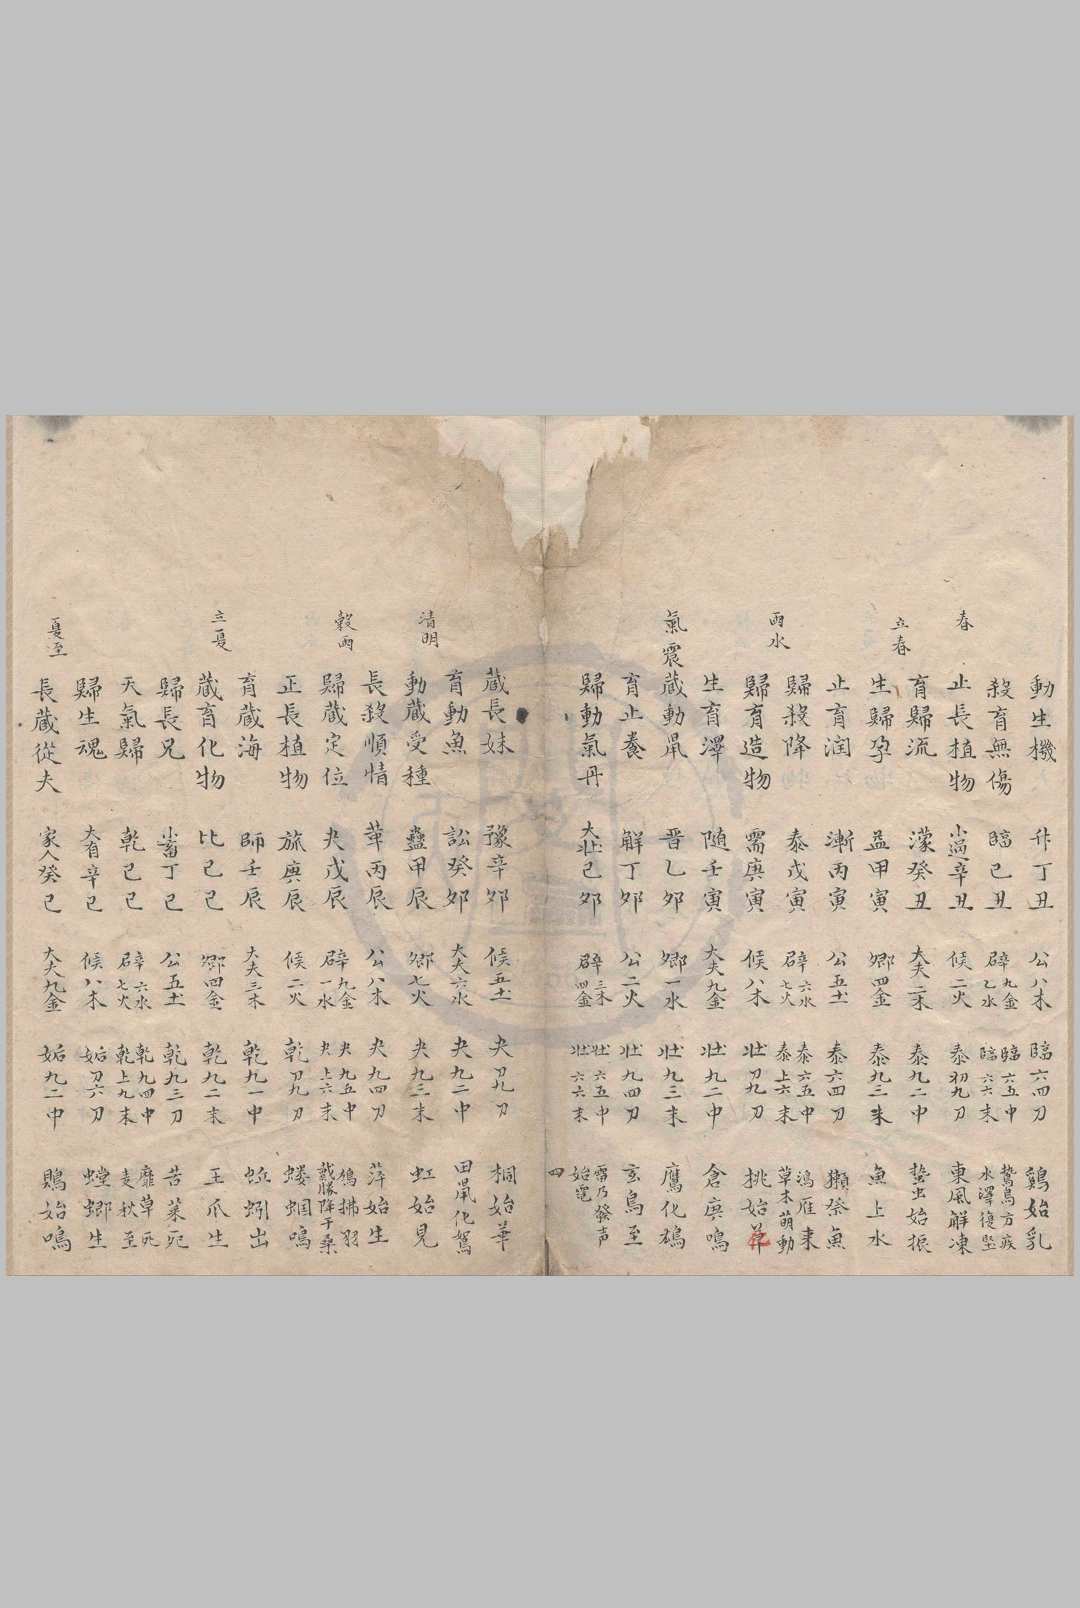 動生機 升丁丑 公八木 臨六四刀 鷄始乳
殺育無傷 臨己丑 辟九金乙水 臨六五中臨六六末 鷙鳥方疾水澤復堅
春 止長植物 小過辛丑 候二火 泰初九刀 東風解凍
育歸流 濛癸丑 大夫三木 泰九二中 蟄虫始振
立春 生歸孕 益甲寅 卿四金 泰九三末 魚上水
止育润 漸丙寅 公五土 泰六四刀 獺祭魚
歸殺降 泰戊寅 辟六水七火 泰六五中泰上六末 鴻雁来草木萌動
雨水 歸育造物 需庚寅 候八木 壯刀九刀 桃始花
生育澤 随壬寅 大夫九金 壯九二中 倉庚鳴
氣震蔵動鼡 晋乙夘 卿一水 壯九三末 鷹化鴣
育止養 解丁夘 公二火 壯九四刀 玄鳥至
歸動氣丹 大壯己夘 辟三木四金 壯六五中壯六六末 雷乃發声始電
四
蔵長妹 豫辛夘 候五土 夬刀九刀 桐始華
育動魚 訟癸夘 大夫六水 夬九二中 田鼡化鴽
清明 動蔵受種 蠱甲辰 卿七火 夬九三末 虹始見
長殺順情 革丙辰 公八木 夬九四刀 萍始生
穀雨 歸蔵定位 夬戊辰 辟九金一水 夬九五中夬上六末 鳩拂羽戴勝降于桑
正長植物 旅庚辰 候二火 乾刀九刀 蝼蝈鳴
育蔵海 師壬辰 大夫三木 乾九一中 蚯蚓出
立夏 蔵育化物 比己巳 卿四金 乾九二末 王瓜生
歸長兄 小畜丁巳 公五土 乾九三刀 苦菜死
天氣歸 乾己巳 辟六水七火 乾九四中乾上九末 靡草死麦秋至
歸生魂 大有辛巳 候八木 姤刀六刀 螳螂生
夏至 長蔵從夫 家人癸巳 大夫九金 姤九二中 鵙始鳴